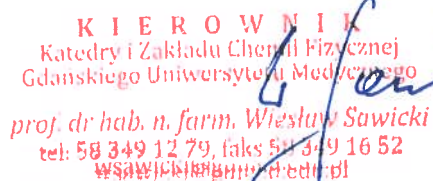 K I E R O W N I K
Katedry i Zakładu Chemii Fizycznej
Gdańskiego Uniwersytetu Medycznego
prof. dr hab. n. farm. Wiesław Sawicki
tel: 58 349 12 79, faks 58 349 16 52